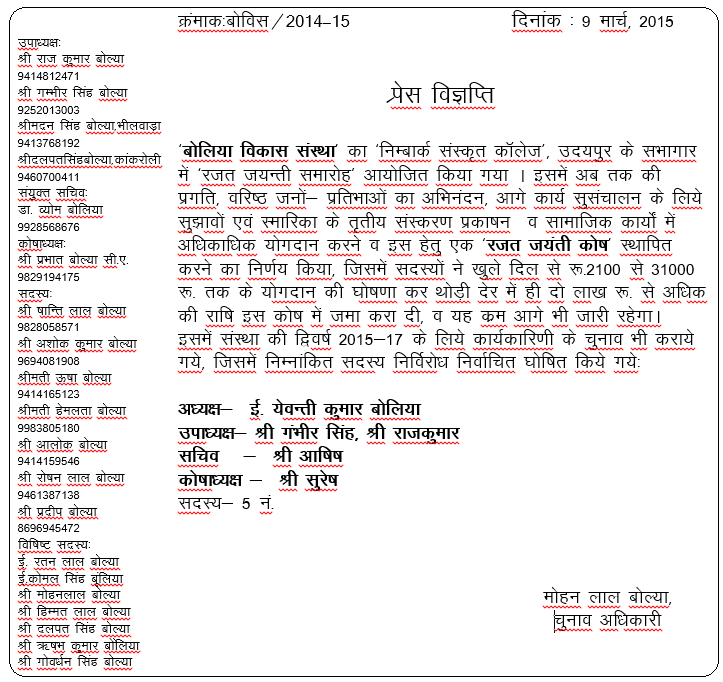 क्रंमाकःबोविस/2014–15
दिनांक : 9 मार्च, 2015
उपाध्यक्षः
श्री राज कुमार बोल्या
9414812471
श्री गम्भीर सिंह बोल्या
9252013003
श्रीमदन सिंह बोल्या,भीलवाड़ा
9413768192
श्रीदलपतसिंहबोल्या,कांकरोली
9460700411
संयुक्त सचिवः
डा. व्योम बोलिया
9928568676
कोषाध्यक्षः
श्री प्रभात बोल्या सी.ए.
9829194175
सदस्यः
श्री षान्ति लाल बोल्या
9828058571
श्री अशोक कुमार बोल्या
9694081908
श्रीमती ऊषा बोल्या
9414165123
श्रीमती हेमलता बोल्या
9983805180
श्री आलोक बोल्या
9414159546
श्री रोषन लाल बोल्या
9461387138
श्री प्रदीप बोल्या
8696945472
विषिष्ट सदस्यः
ई. रतन लाल बोल्या
ई.कोमल सिंह बुंलिया
श्री मोहनलाल बोल्या
श्री हिम्मत लाल बोल्या
श्री दलपत सिंह बोल्या
श्री ऋषभ कुमार बोलिया
श्री गोवर्धन सिंह बोल्या
प्रेस विज्ञप्ति
‘बोलिया विकास संस्था’ का ‘निम्बार्क संस्कृत कॉलेज’, उदयपुर के सभागार
में ‘रजत जयन्ती समारोह’ आयोजित किया गया । इसमें अब तक की
प्रगति, वरिष्ठ जनों– प्रतिभाओं का अभिनंदन, आगे कार्य सुसंचालन के लिये
सुझावों एवं स्मारिका के तृतीय संस्करण प्रकाषन व सामाजिक कार्यों में
अधिकाधिक योगदान करने व इस हेतु एक ‘रजत जयंती कोष’ स्थापित
करने का निर्णय किया, जिसमें सदस्यों ने खुले दिल से रू.2100 से 31000
रू. तक के योगदान की घोषणा कर थोड़ी देर में ही दो लाख रू. से अधिक
की राषि इस कोष में जमा करा दी, व यह कम आगे भी जारी रहेगा।
इसमें संस्था की द्विवर्ष 2015–17 के लिये कार्यकारिणी के चुनाव भी कराये
गये, जिसमें निम्नांकित सदस्य निर्विरोध निर्वाचित घोषित किये गयेः
अध्यक्ष– ई. येवन्ती कुमार बोलिया
उपाध्यक्ष– श्री गंभीर सिंह, श्री राजकुमार
सचिव – श्री आषिष
कोषाध्यक्ष – श्री सुरेष
सदस्य– 5 नं.
मोहन लाल बोल्या,
चुनाव अधिकारी